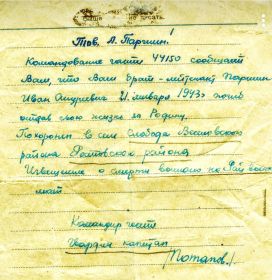 Тов. Л. Паршин!
Командование части 44150 сообщает
Вам, что Ваш брат - лейтенант Паршин
Иван Андреевич 21 января 1943г погиб
отдав свою жизнь за Родину.
Похоронен в селе Слобода
района Ростовского района
Извещение о смерти выслано на
Командир части
Гвардии капитан
/Потапов./